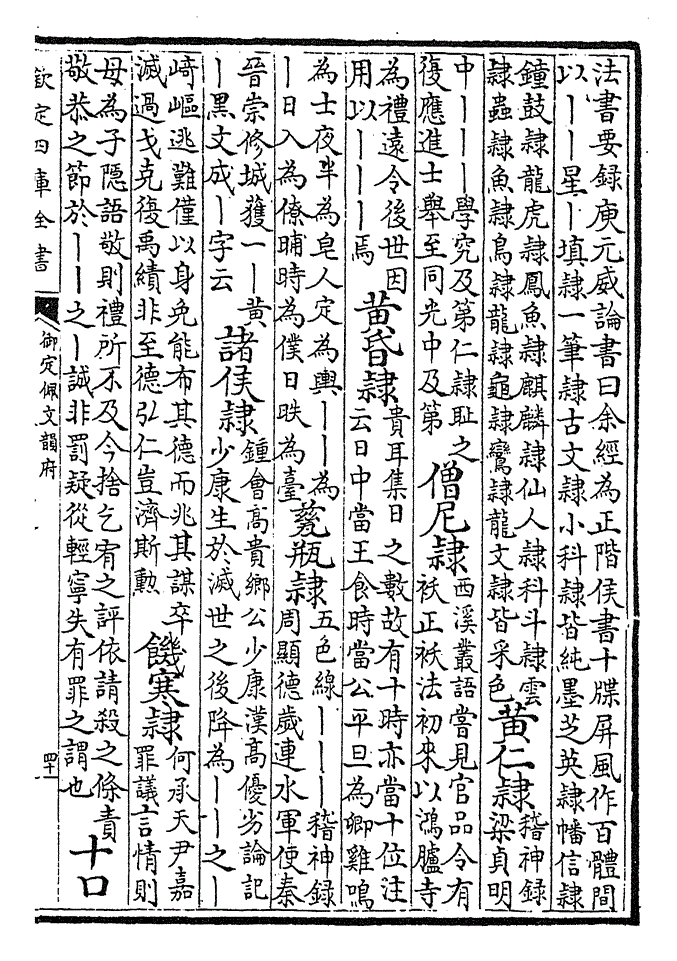 法書要録庾元威論書曰余經為正階侯書十牒屏風作百體間
以丨丨星丨填隷一筆隷古文隷小科隷皆純墨芝英隷幡信隷
鐘鼓隷龍虎隷鳳魚隷麒麟隷仙人隷科斗隷雲
隷蟲隷魚隷鳥隷龍隷龜隷鸞隷龍文隷皆采色
黄仁隷
稽神録
梁貞明
中丨丨丨學究及第仁隷耻之
復應進士舉至同光中及第
僧尼隷
西溪叢語嘗見官品令有
祅正祅法初來以鴻臚寺
為禮遠令後世因
用以丨丨丨焉
黄昏隷
貴耳集日之數故有十時亦當十位注
云日中當王食時當公平旦為卿雞鳴
為士夜半為皂人定為輿丨丨為
丨日入為僚晡時為僕日昳為臺
甆瓶隷
五色線丨丨丨稽神録
周顯德歲連水軍使秦
晉崇修城獲一丨黄
丨黑文成丨字云
諸侯隷
鍾會髙貴鄉公少康漢髙優劣論記
少康生於滅世之後降為丨丨之丨
崎嶇逃難僅以身免能布其德而兆其謀卒
滅過戈克復禹績非至德弘仁豈濟斯勲
饑寒隷
何承天尹嘉
罪議言情則
母為子隠語敬則禮所不及今捨乞宥之評依請殺之條責
敬恭之節於丨丨之丨誠非罰疑從輕寧失有罪之謂也
十口
欽定四庫全書
御定佩文韻府
四十